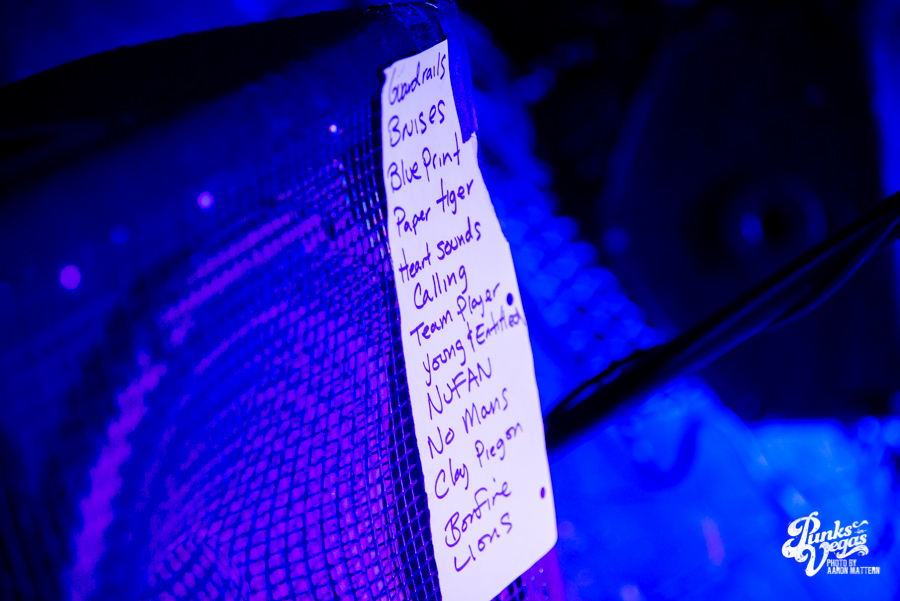 Guardrails
Bruises
Blue Print
Paper tiger
Heart sounds
Calling
Team Player
Young & Entitled
NuFAN
No Mans
Clay Piegon
Bonfire
Lions
Punks
in
Vegas
PHOTO BY
AARON MATTERN